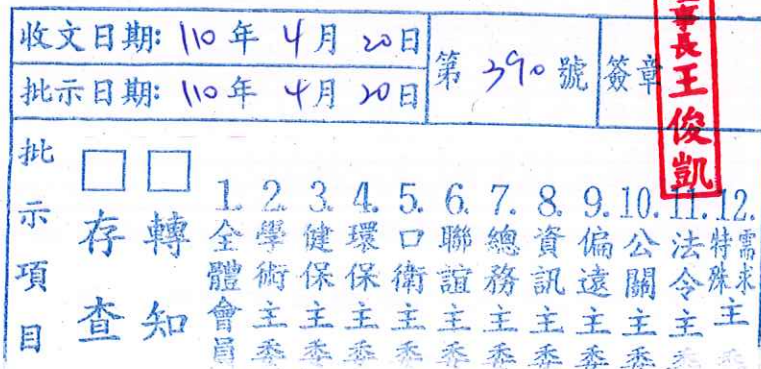 收文日期: 110年 4月 20日
批示日期: 110年 4月 20日
第 390 號
簽章
事長王俊凱
批示項目
□存查
□轉知
1.全體會員
2.學術主委
3.健保主委
4.環保主委
5.口衛主委
6.聯誼主委
7.總務主委
8.資訊主委
9.偏遠主委
10.公關主委
11.法令主委
12.特殊需求主